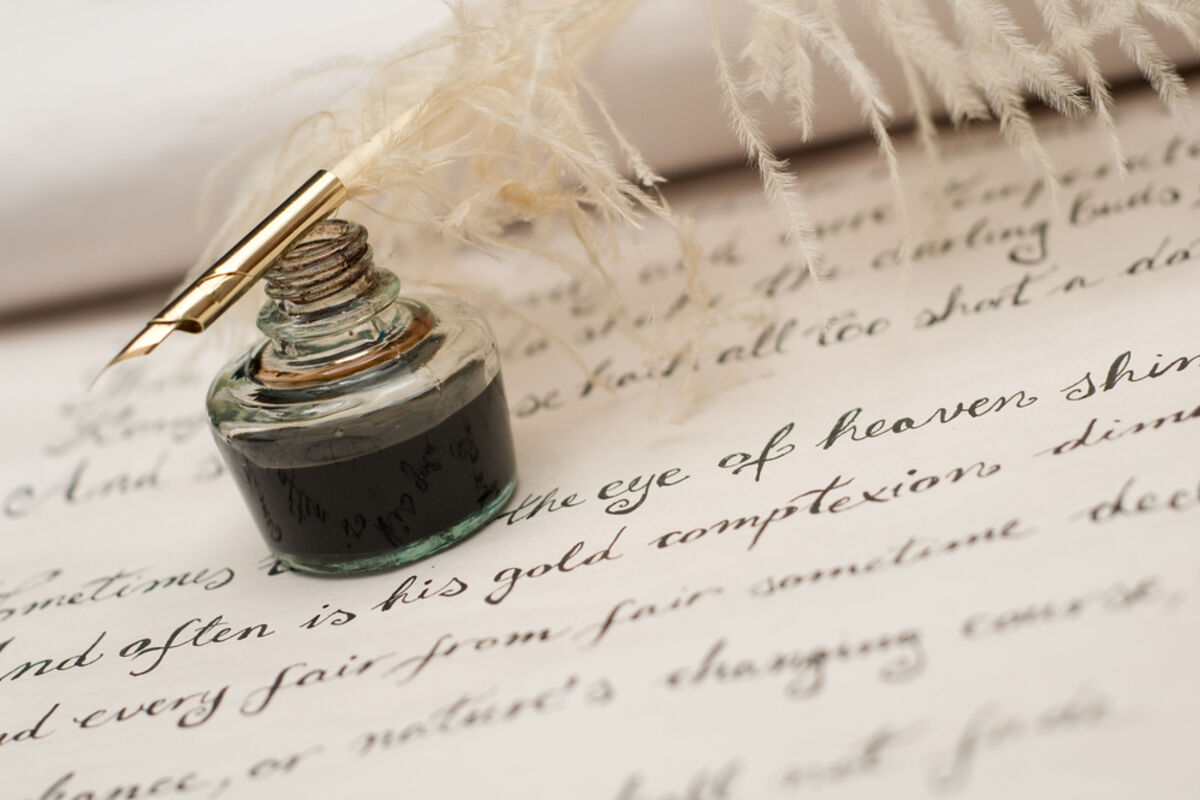 and more temperate
shake the darling buds
hath all too short a da
And s
Sometimes t the eye of heaven shin
And often is his gold comptexion dimm
nd every fair from fair sometime decl
chance, or nature's changing course,
all not fade